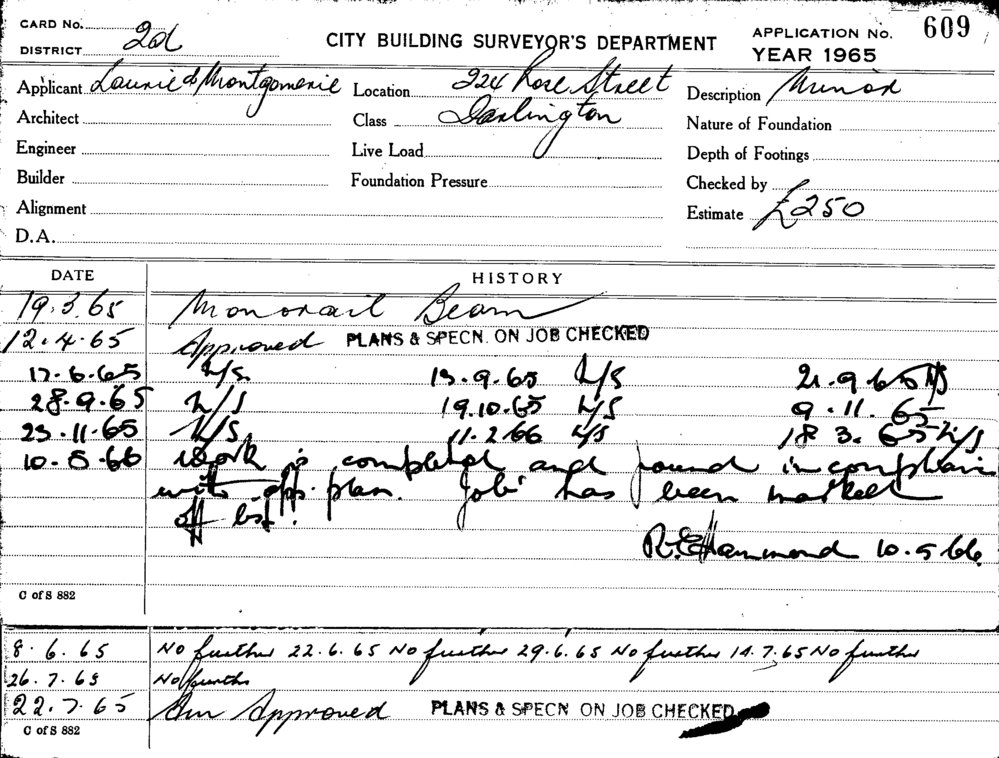 CARD No. 2d
DISTRICT
CITY BUILDING SURVEYOR'S DEPARTMENT
APPLICATION No. 609
YEAR 1965
Applicant Laurie & Montgomerie Location 224 Rose Street Description Minor
Architect Class Darlington Nature of Foundation
Engineer Live Load Depth of Footings
Builder Foundation Pressure Checked by
Alignment Estimate £250
D.A.
DATE HISTORY
19.3.65 Monorail Beam
12.4.65 Approved PLANS & SPECN. ON JOB CHECKED
17.6.65 N/S. 13.9.65 N/S 21.9.65 N/S
28.9.65 N/S 19.10.65 N/S 9.11.65
23.11.65 N/S. 11.2.66 N/S 18 3. 65 N/S
10.5.66 Work is completed and found in complianc
with app. plan. Job has been marked
off list.
R.E. Hammond 10.5.66.
C of S 882
8.6.65 No further 22.6.65 No further 29.6.65 No further 14.7.65 No further
26.7.65 No further
22.7.65 Am Approved PLANS & SPECN ON JOB CHECKED
C of S 882